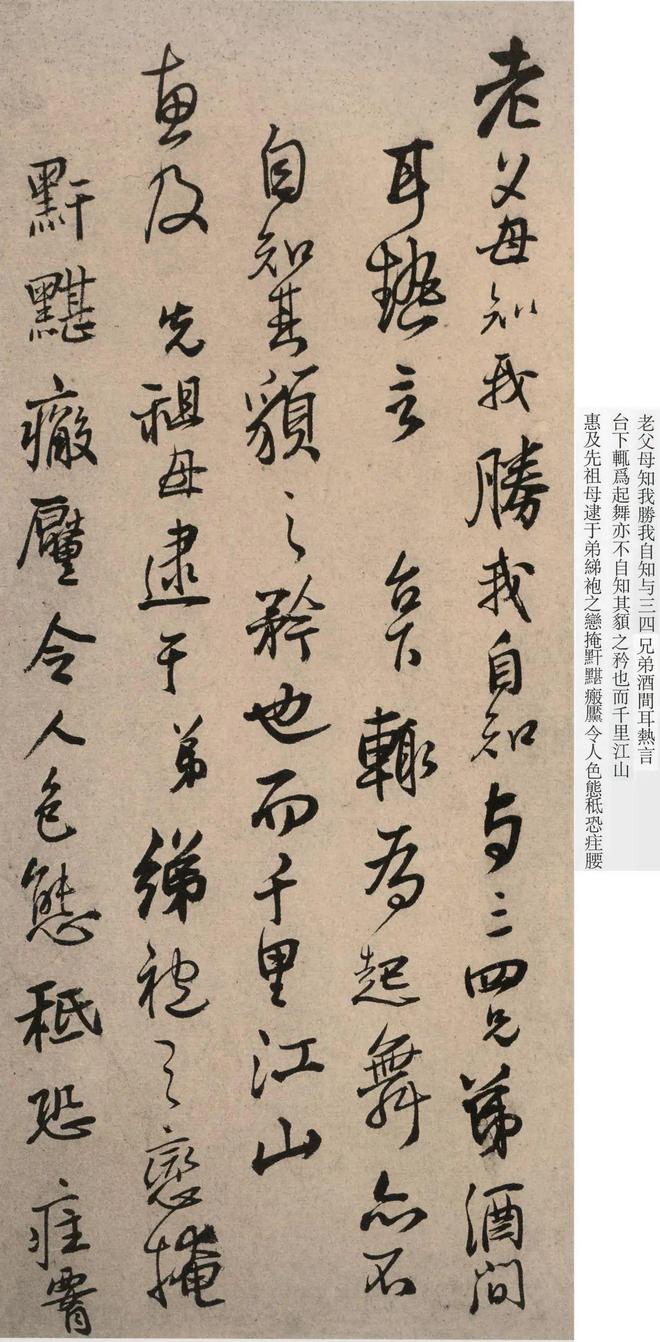 老父母知我勝我自知与三四兄弟酒間
耳熱言 台下輙為起舞亦不
自知其額之矜也而千里江山
惠及 先祖母逮于弟綈袍之戀掩
黚黮瘢黶令人色態秪恐疰
老父母知我勝我自知与三四兄弟酒間耳熱言
台下輒爲起舞亦不自知其額之矜也而千里江山
惠及先祖母逮于弟綈袍之戀掩黚黮瘢黶令人色態秪恐疰腰